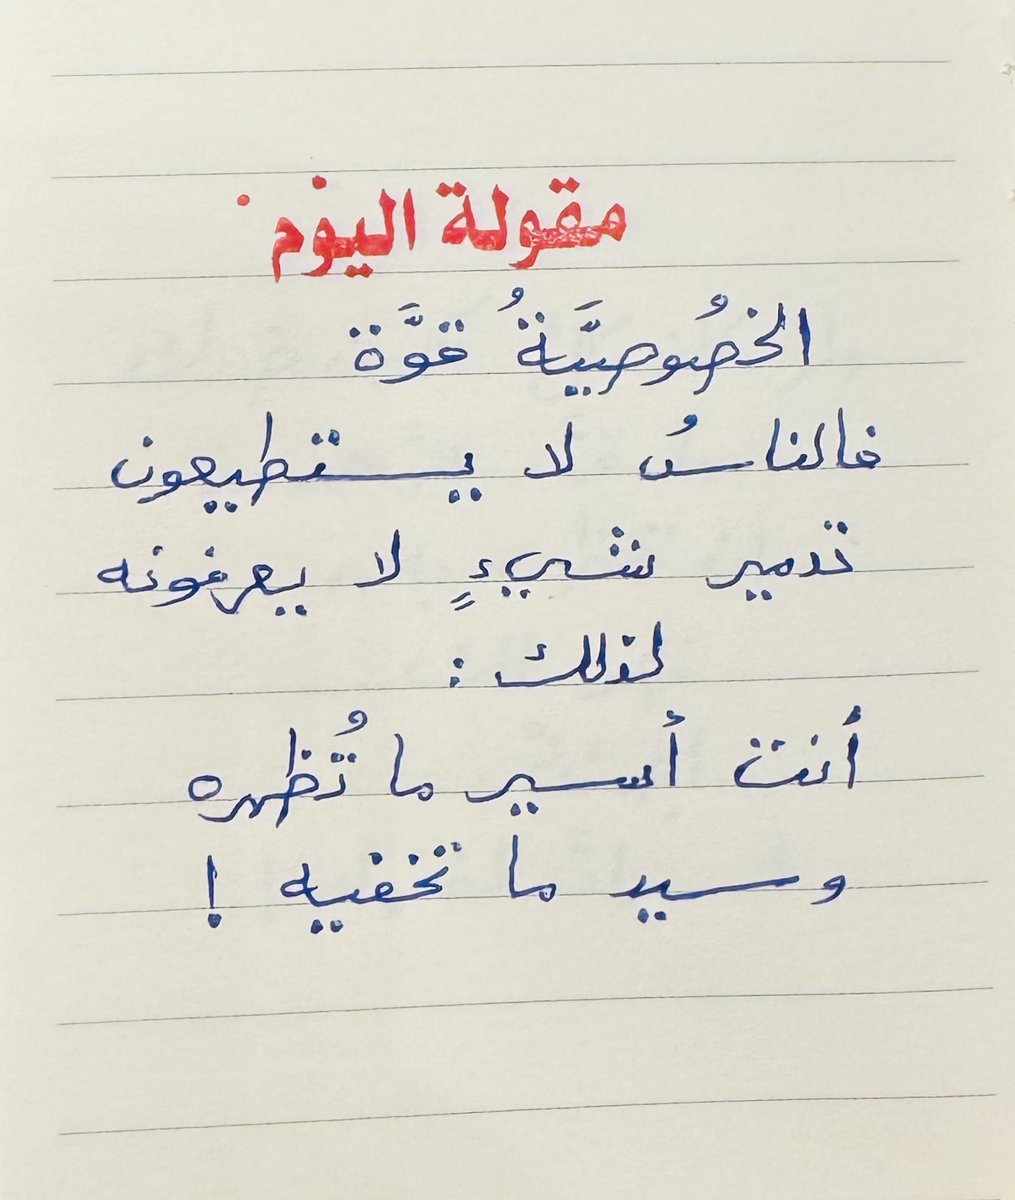 مقولة اليوم
الخُصوصيَّةُ قوَّة
فالناسُ لا يستطيعون
تدمير شيءٍ لا يعرفونه
لذلك :
أنت أسير ما تُظهره
وسيد ما تخفيه !